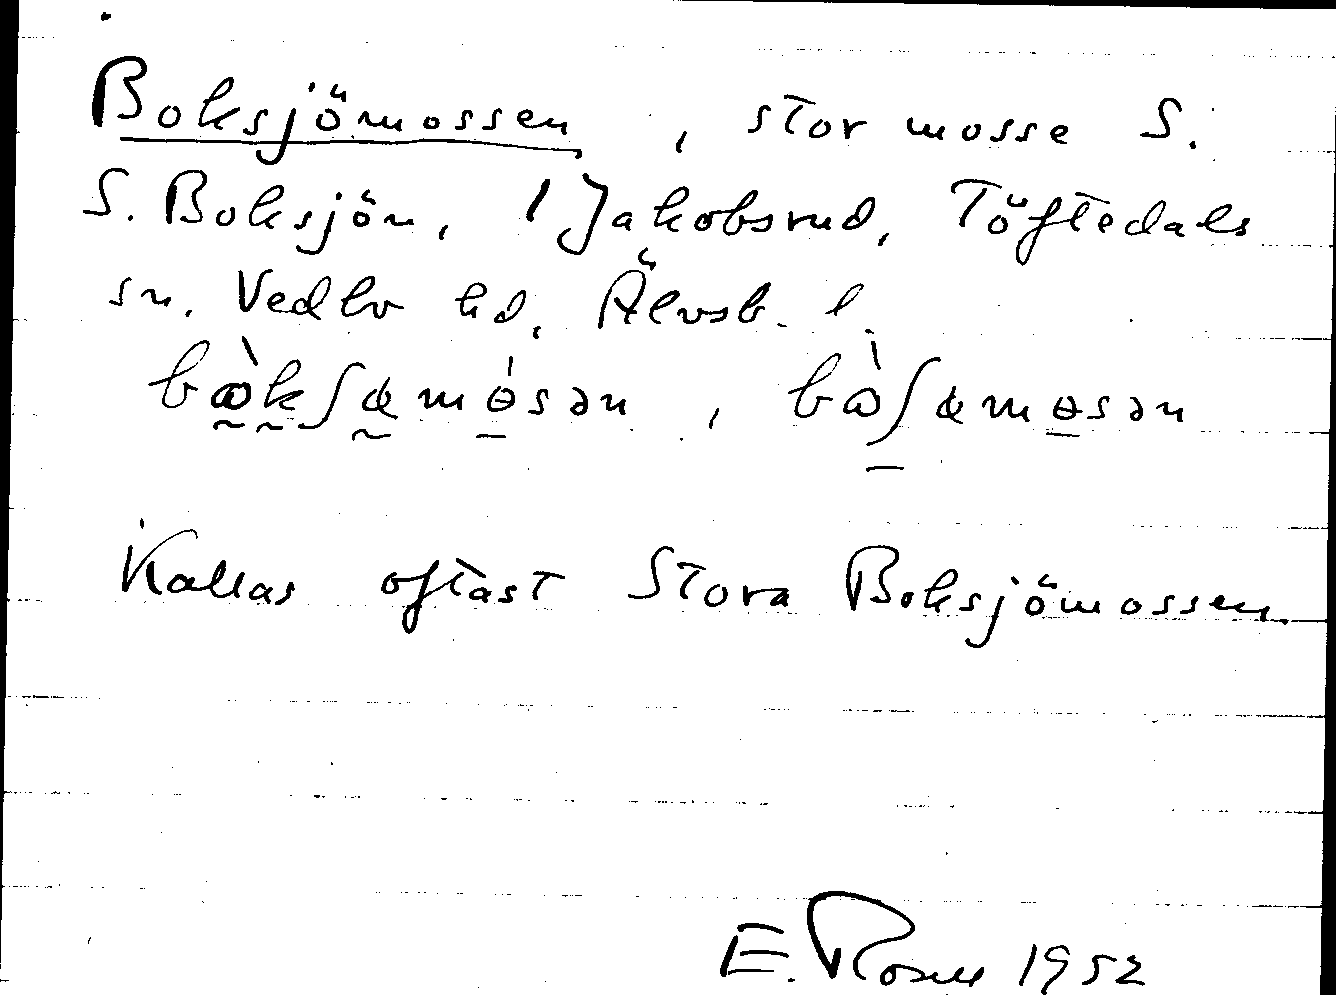 Boksjömossen, stor mosse S.
S. Boksjön, 1 Jakobsrud, Töftedals
sn. Vedbo hd, Älvsb. l.
bὼkʃɶmɵ́sən, bὼʃɶmɵsən
Kallas oftast Stora Boksjömossen.
E. Rosell 1952